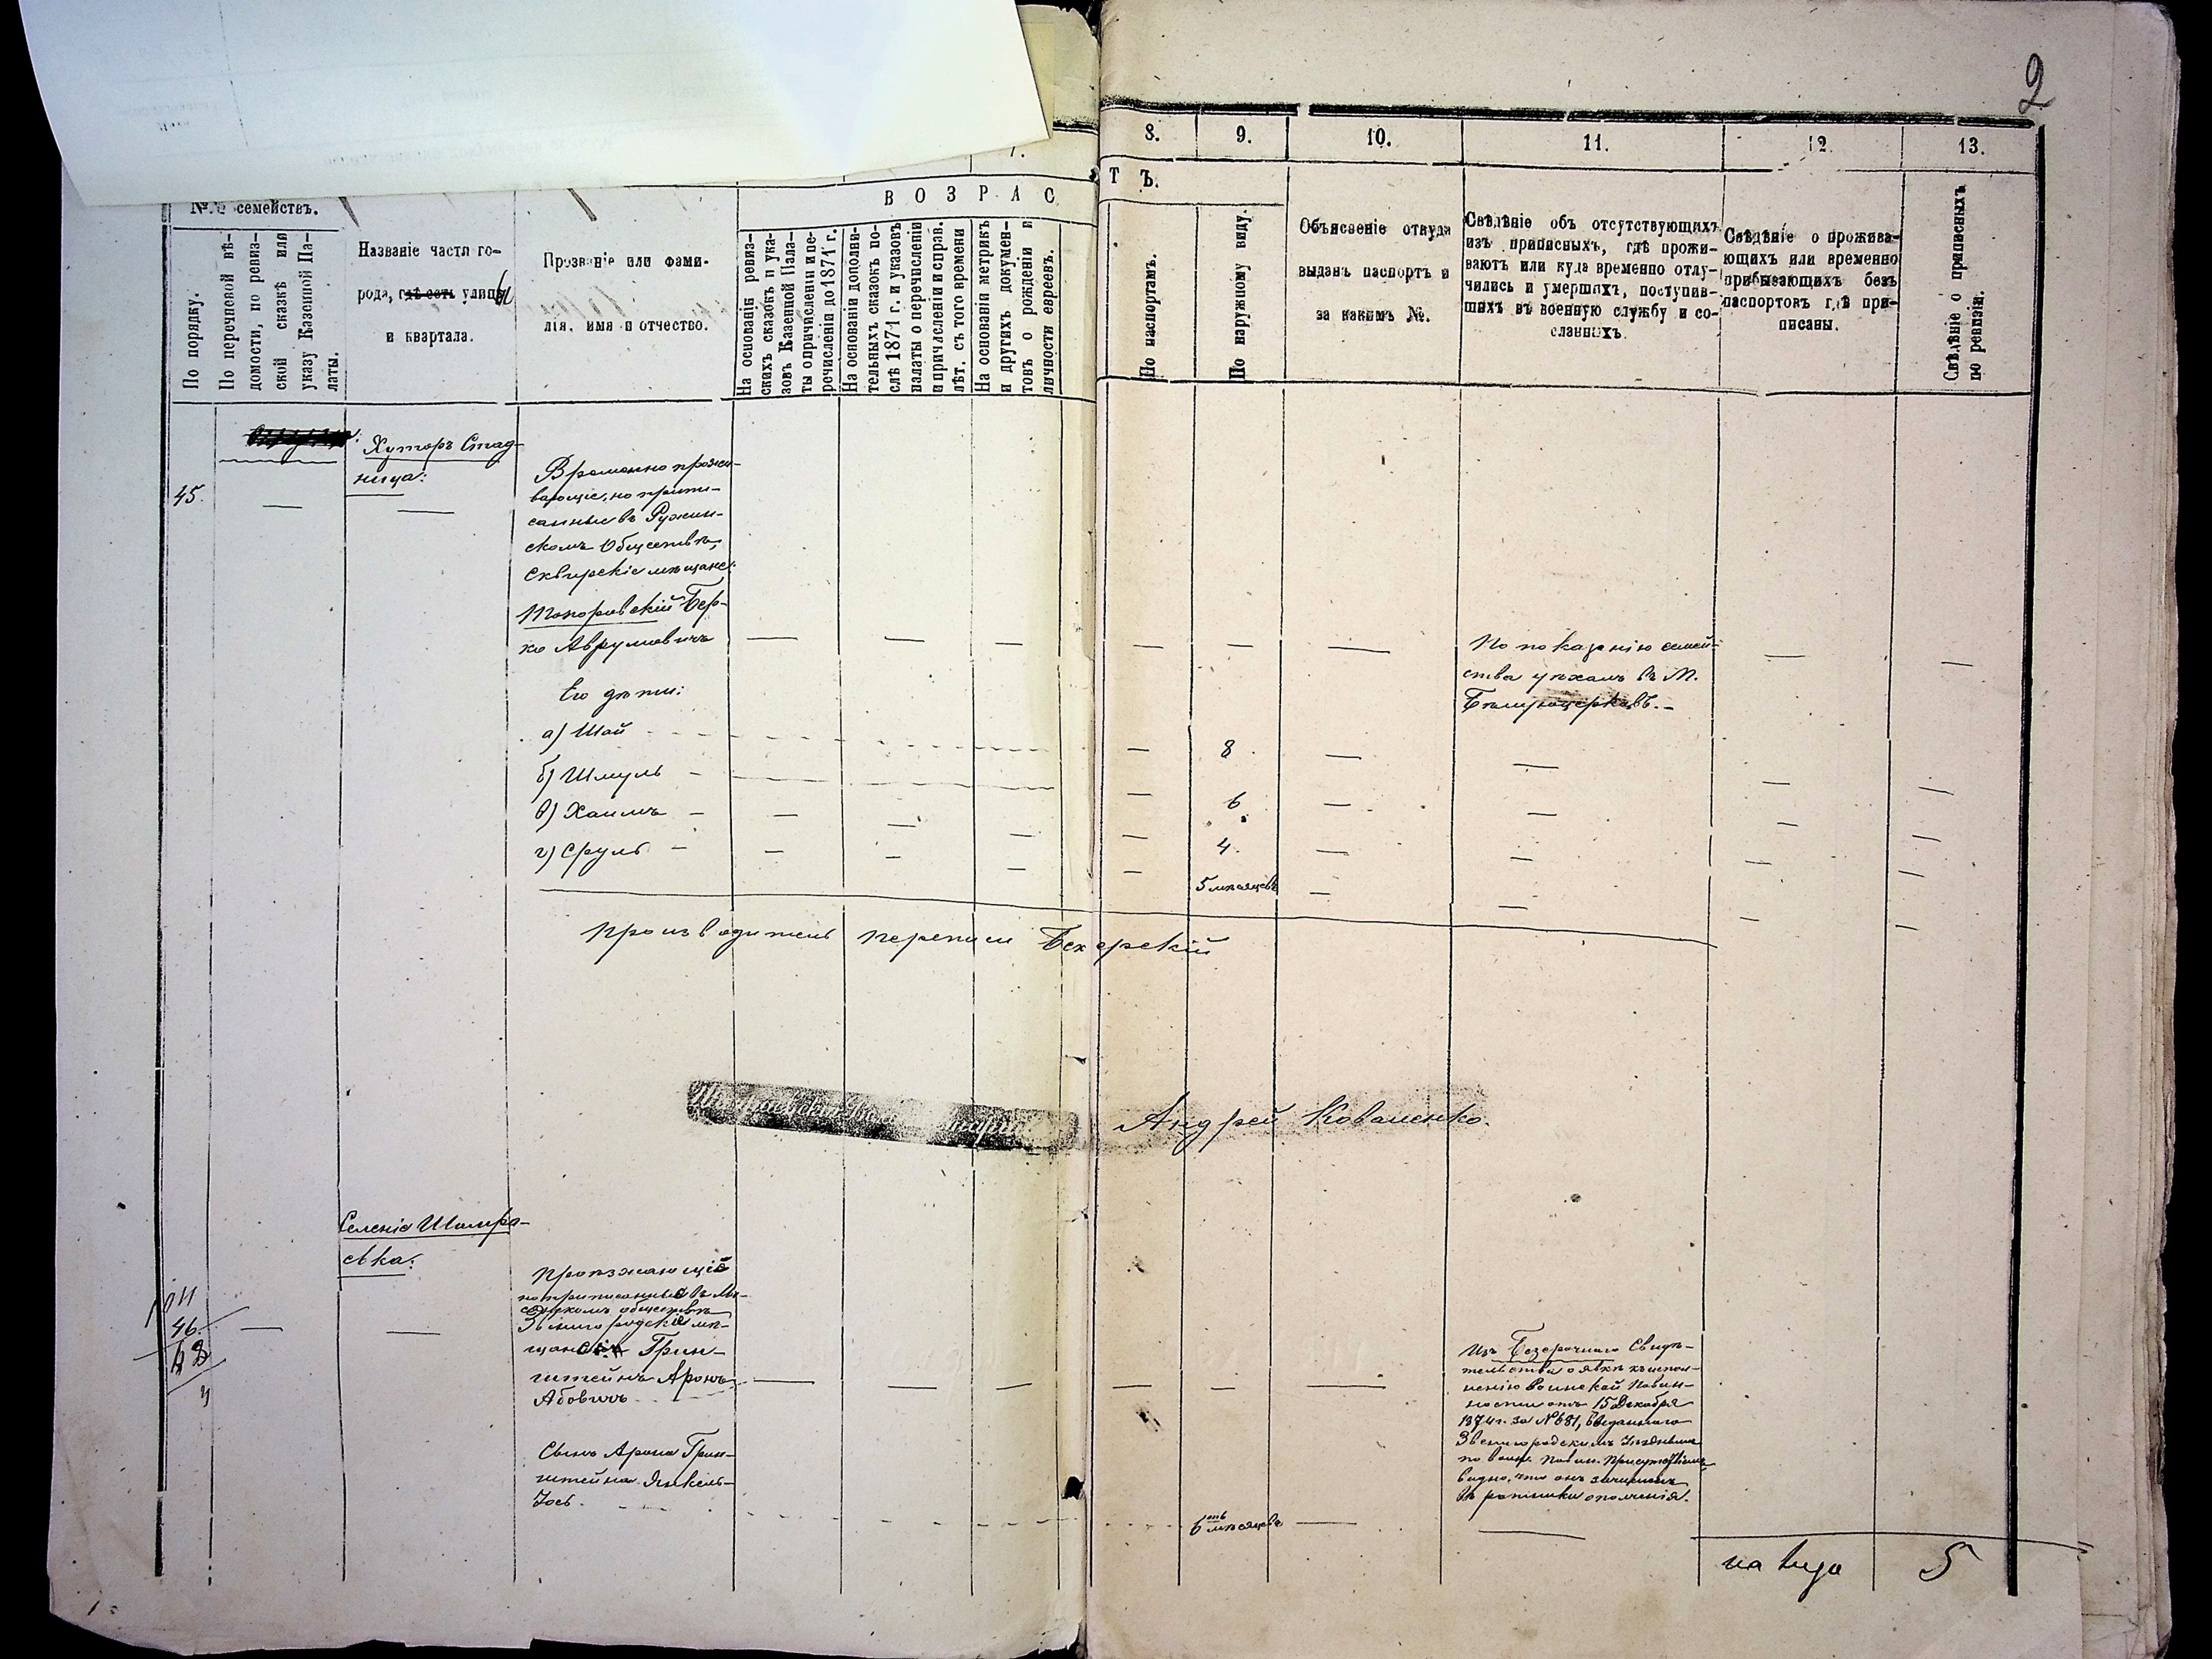 2
7.
8.
9.
10.
11.
12
13.
ВОЗРАС
ТЪ.
№№ семействъ.
По порядку.
По перечневой вѣ-
домости, по ревиз-
ской сказкѣ или
указу Казенной Па-
латы.
Названіе части го-
рода, гдѣ есть улицы
и квартала.
Прозваніе или фами-
лія, имя и отчество.
На основаніи ревиз-
скихъ сказокъ и ука-
зовъ Казенной Пала-
ты о причисленіи и пе-
речисленіи до 1871 г.
На основаніи дополни-
тельныхъ сказокъ по-
слѣ 1871 г. и указовъ
палаты о перечисленіи
и причисленіи и справ.
лѣт. съ того времени
На основаніи метрикъ
и другихъ докумен-
товъ о рожденіи и
личности евреевъ.
По паспортамъ.
По наружному виду.
Объясненіе откуда
выданъ паспортъ и
за какимъ №.
Свѣдѣніе объ отсутствующихъ
изъ приписныхъ, гдѣ прожи-
ваютъ или куда временно отлу-
чились и умершихъ, поступив-
шихъ въ военную службу и со-
сланныхъ.
Свѣдѣніе о прожива-
ющихъ или временно
прибывающихъ безъ
паспортовъ гдѣ при-
писаны.
Свѣдѣніе о приписныхъ
по ревизіи.
Хуторъ Стад-
ница:
45.
Временно прожи-
вающіе, но припи-
санные въ Ружин-
скомъ Обществѣ,
Сквирскіе мѣщане:
Топоровскій Бер-
ко Аврумовичъ
По показанію семей-
ства уѣхалъ въ М.
Бѣлуюцерковь.
Его дѣти:
а) Шай
8
б) Шмуль
6
в) Хаимъ
4.
г) Сруль
5 мѣсяцевъ
Производитель переписи
Андрей Коваленко.
Селеніе Шамра-
евка:
46.
Проѣзжающій
Звенигородскій мѣ-
Грин-
штейнъ Аронъ
Абовичъ
Изъ Безсрочнаго Свидѣ-
тельства о явкѣ къ испол-
ненію Воинской Повин-
ности отъ 15 Декабря
1874 г. за № 681, выданнаго
Звенигородскимъ Уѣзднымъ
по воин. повин. Присутствіемъ
видно, что онъ зачисленъ
въ ратники ополченія.
Сынъ Арона Грин-
штейна Янкель-
Іось
6 мѣсяцевъ
на лицо
5